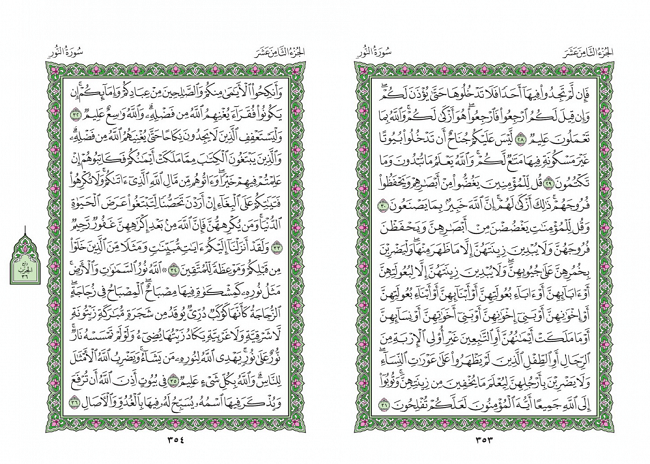 الجُزْءُ الثَّامِنَ عَشَرَ
سُورَةُ النُّورِ
فَإِن لَّمْ تَجِدُوا۟ فِيهَآ أَحَدًا فَلَا تَدْخُلُوهَا حَتَّىٰ يُؤْذَنَ لَكُمْ ۖ
وَإِن قِيلَ لَكُمُ ٱرْجِعُوا۟ فَٱرْجِعُوا۟ ۖ هُوَ أَزْكَىٰ لَكُمْ ۚ وَٱللَّهُ بِمَا
تَعْمَلُونَ عَلِيمٌ ٢٨ لَّيْسَ عَلَيْكُمْ جُنَاحٌ أَن تَدْخُلُوا۟ بُيُوتًا
غَيْرَ مَسْكُونَةٍ فِيهَا مَتَـٰعٌ لَّكُمْ ۚ وَٱللَّهُ يَعْلَمُ مَا تُبْدُونَ وَمَا
تَكْتُمُونَ ٢٩ قُل لِّلْمُؤْمِنِينَ يَغُضُّوا۟ مِنْ أَبْصَـٰرِهِمْ وَيَحْفَظُوا۟
فُرُوجَهُمْ ۚ ذَٰلِكَ أَزْكَىٰ لَهُمْ ۗ إِنَّ ٱللَّهَ خَبِيرٌۢ بِمَا يَصْنَعُونَ ٣٠
وَقُل لِّلْمُؤْمِنَـٰتِ يَغْضُضْنَ مِنْ أَبْصَـٰرِهِنَّ وَيَحْفَظْنَ
فُرُوجَهُنَّ وَلَا يُبْدِينَ زِينَتَهُنَّ إِلَّا مَا ظَهَرَ مِنْهَا ۖ وَلْيَضْرِبْنَ
بِخُمُرِهِنَّ عَلَىٰ جُيُوبِهِنَّ ۖ وَلَا يُبْدِينَ زِينَتَهُنَّ إِلَّا لِبُعُولَتِهِنَّ
أَوْ ءَابَآئِهِنَّ أَوْ ءَابَآءِ بُعُولَتِهِنَّ أَوْ أَبْنَآئِهِنَّ أَوْ أَبْنَآءِ بُعُولَتِهِنَّ
أَوْ إِخْوَٰنِهِنَّ أَوْ بَنِىٓ إِخْوَٰنِهِنَّ أَوْ بَنِىٓ أَخَوَٰتِهِنَّ أَوْ نِسَآئِهِنَّ
أَوْ مَا مَلَكَتْ أَيْمَـٰنُهُنَّ أَوِ ٱلتَّـٰبِعِينَ غَيْرِ أُو۟لِى ٱلْإِرْبَةِ مِنَ
ٱلرِّجَالِ أَوِ ٱلطِّفْلِ ٱلَّذِينَ لَمْ يَظْهَرُوا۟ عَلَىٰ عَوْرَٰتِ ٱلنِّسَآءِ ۖ
وَلَا يَضْرِبْنَ بِأَرْجُلِهِنَّ لِيُعْلَمَ مَا يُخْفِينَ مِن زِينَتِهِنَّ ۚ وَتُوبُوٓا۟
إِلَى ٱللَّهِ جَمِيعًا أَيُّهَ ٱلْمُؤْمِنُونَ لَعَلَّكُمْ تُفْلِحُونَ ٣١
٣٥٣
الجُزْءُ الثَّامِنَ عَشَرَ
سُورَةُ النُّورِ
وَأَنكِحُوا۟ ٱلْأَيَـٰمَىٰ مِنكُمْ وَٱلصَّـٰلِحِينَ مِنْ عِبَادِكُمْ وَإِمَآئِكُمْ ۚ إِن
يَكُونُوا۟ فُقَرَآءَ يُغْنِهِمُ ٱللَّهُ مِن فَضْلِهِۦ ۗ وَٱللَّهُ وَٰسِعٌ عَلِيمٌ ٣٢
وَلْيَسْتَعْفِفِ ٱلَّذِينَ لَا يَجِدُونَ نِكَاحًا حَتَّىٰ يُغْنِيَهُمُ ٱللَّهُ مِن فَضْلِهِۦ ۗ
وَٱلَّذِينَ يَبْتَغُونَ ٱلْكِتَـٰبَ مِمَّا مَلَكَتْ أَيْمَـٰنُكُمْ فَكَاتِبُوهُمْ إِنْ
عَلِمْتُمْ فِيهِمْ خَيْرًا ۖ وَءَاتُوهُم مِّن مَّالِ ٱللَّهِ ٱلَّذِىٓ ءَاتَىٰكُمْ ۚ وَلَا تُكْرِهُوا۟
فَتَيَـٰتِكُمْ عَلَى ٱلْبِغَآءِ إِنْ أَرَدْنَ تَحَصُّنًا لِّتَبْتَغُوا۟ عَرَضَ ٱلْحَيَوٰةِ
ٱلدُّنْيَا ۚ وَمَن يُكْرِههُّنَّ فَإِنَّ ٱللَّهَ مِنۢ بَعْدِ إِكْرَٰهِهِنَّ غَفُورٌ رَّحِيمٌ
٣٣ وَلَقَدْ أَنزَلْنَآ إِلَيْكُمْ ءَايَـٰتٍ مُّبَيِّنَـٰتٍ وَمَثَلًا مِّنَ ٱلَّذِينَ خَلَوْا۟
مِن قَبْلِكُمْ وَمَوْعِظَةً لِّلْمُتَّقِينَ ٣٤ ۞ ٱللَّهُ نُورُ ٱلسَّمَـٰوَٰتِ وَٱلْأَرْضِ ۚ
مَثَلُ نُورِهِۦ كَمِشْكَوٰةٍ فِيهَا مِصْبَاحٌ ۖ ٱلْمِصْبَاحُ فِى زُجَاجَةٍ ۖ
ٱلزُّجَاجَةُ كَأَنَّهَا كَوْكَبٌ دُرِّىٌّ يُوقَدُ مِن شَجَرَةٍ مُّبَـٰرَكَةٍ زَيْتُونَةٍ
لَّا شَرْقِيَّةٍ وَلَا غَرْبِيَّةٍ يَكَادُ زَيْتُهَا يُضِىٓءُ وَلَوْ لَمْ تَمْسَسْهُ نَارٌ ۚ
نُّورٌ عَلَىٰ نُورٍ ۗ يَهْدِى ٱللَّهُ لِنُورِهِۦ مَن يَشَآءُ ۚ وَيَضْرِبُ ٱللَّهُ ٱلْأَمْثَـٰلَ
لِلنَّاسِ ۗ وَٱللَّهُ بِكُلِّ شَىْءٍ عَلِيمٌ ٣٥ فِى بُيُوتٍ أَذِنَ ٱللَّهُ أَن تُرْفَعَ
وَيُذْكَرَ فِيهَا ٱسْمُهُۥ يُسَبِّحُ لَهُۥ فِيهَا بِٱلْغُدُوِّ وَٱلْـَٔاصَالِ ٣٦
٣٥٤
الحزب
٣٦